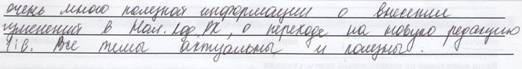 очень много полезной информации о внесении
изменений в Нал. код. РК, о переходе на новую редакцию
1:С. Все темы актуальны и полезны.